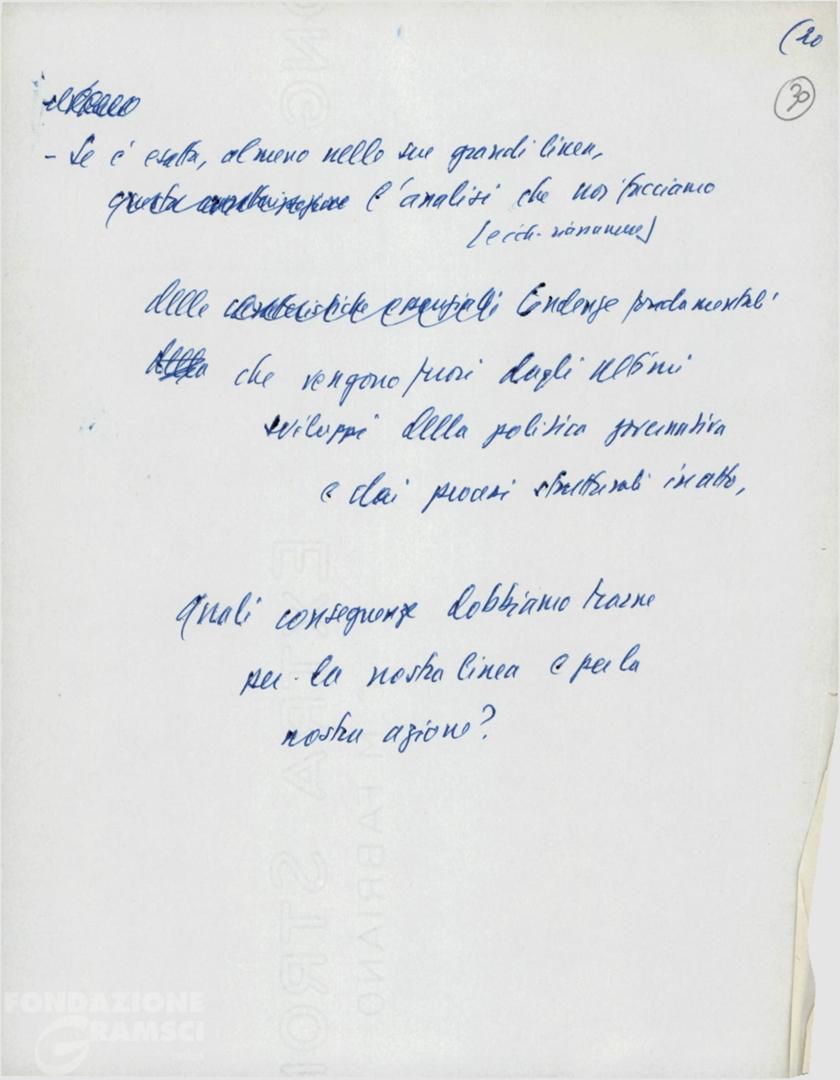 (20
30
- Se è esatta, almeno nelle sue grandi linee,
questa caratterizzazione l'analisi che noi facciamo
delle caratteristiche essenziali tendenze fondamentali
della che vengono fuori dagli ultimi
sviluppi della politica governativa
e dai processi strutturali in atto,
Quali conseguenze dobbiamo trarne
per la nostra linea e per la
nostra azione?
EXTRA STRONG
FABRIANO
FONDAZIONE
GRAMSCI